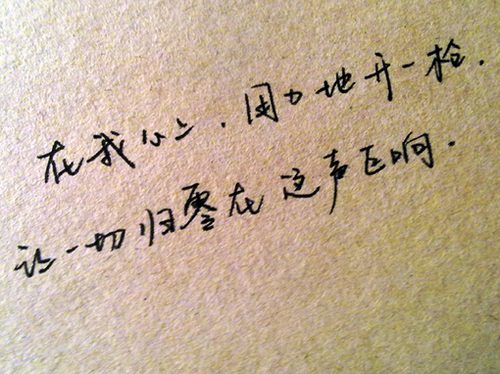 在我心上.用力地开一枪.
让一切归零在这声巨响.